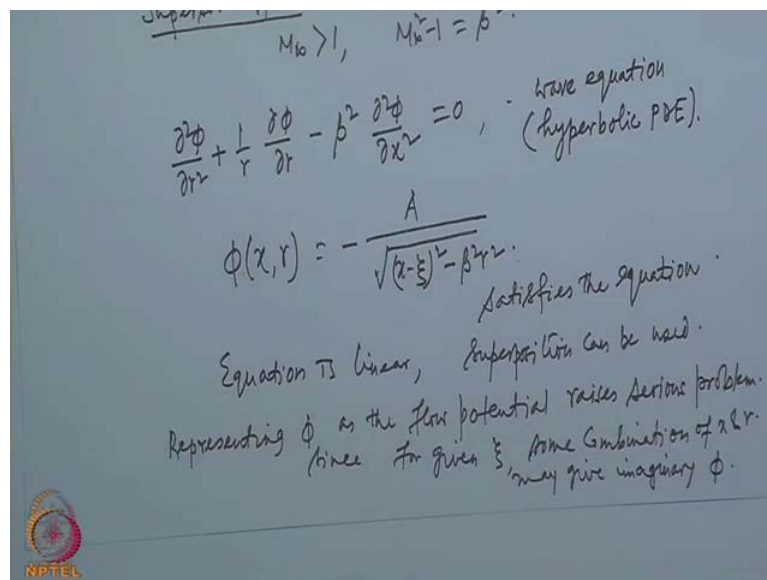 M∞ > 1, M∞²-1 = β².
∂²φ/∂r² + 1/r ∂φ/∂r - β² ∂²φ/∂x² = 0, wave equation
(hyperbolic PDE).
φ(x,r) = - A/√((x-ξ)² - β²r²).
satisfies the equation.
Equation is linear, superposition can be used.
Representing φ as the flow potential raises serious problem.
since for given ξ, some combination of x & r.
may give imaginary φ.
NPTEL